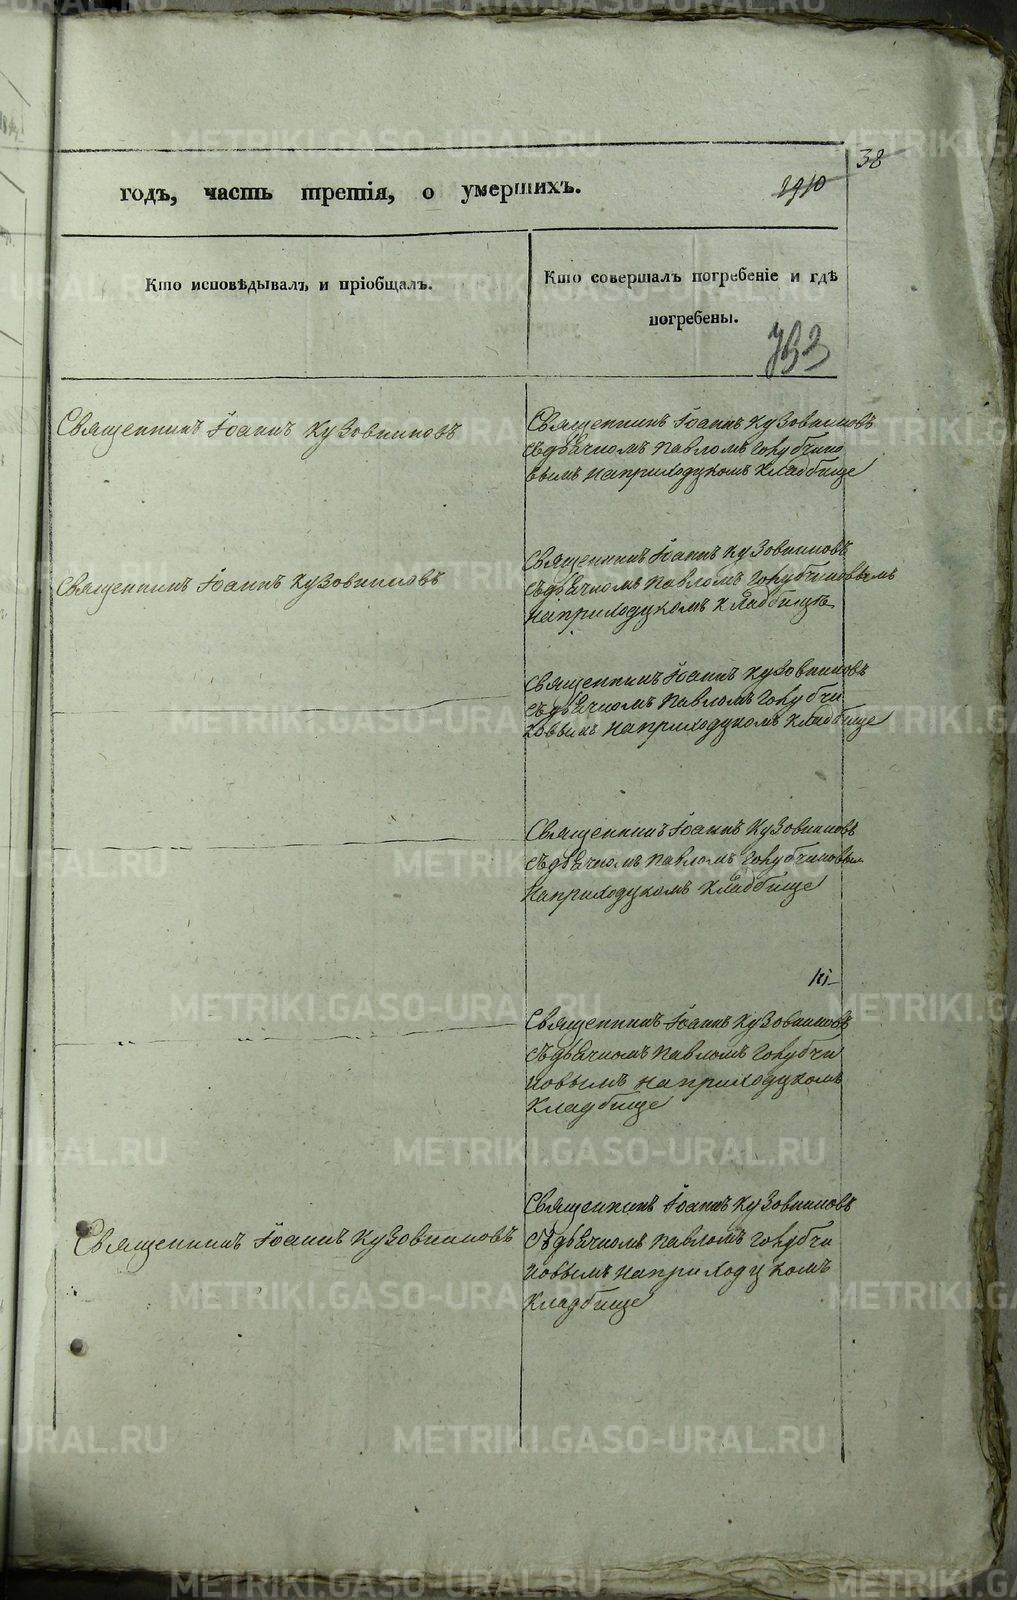 38
годъ, часть третія, о умершихъ.
Кто исповѣдывалъ и пріобщалъ.
Кто совершалъ погребеніе и гдѣ
погребены.
Священникъ Іоаннъ Кузовниковъ
Священникъ Іоаннъ Кузовниковъ
съ дьячкомъ Павломъ Голубчико
вымъ на приходцкомъ кладбище
Священникъ Іоаннъ Кузовниковъ
Священникъ Іоаннъ Кузовниковъ
съ дьячкомъ Павломъ Голубчиковымъ
на приходцкомъ кладбищѣ
Священникъ Іоаннъ Кузовниковъ
съ дьячкомъ Павломъ Голубчи
ковымъ на приходцкомъ кладбище
Священникъ Іоаннъ Кузовниковъ
съ дьячкомъ Павломъ Голубчиковым
на приходцкомъ кладбище
Священникъ Іоаннъ Кузовниковъ
съ дьячкомъ Павломъ Голубчи
ковымъ на приходцкомъ
кладбище
Священникъ Іоаннъ Кузовниковъ
Священникъ Іоаннъ Кузовниковъ
съ дьячкомъ Павломъ Голубчи
ковымъ на приходцкомъ
кладбище
METRIKI.GASO-URAL.RU